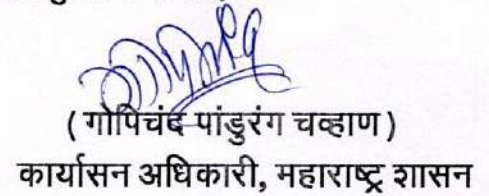 ( गोपिचंद पांडुरंग चव्हाण )
कार्यासन अधिकारी, महाराष्ट्र शासन